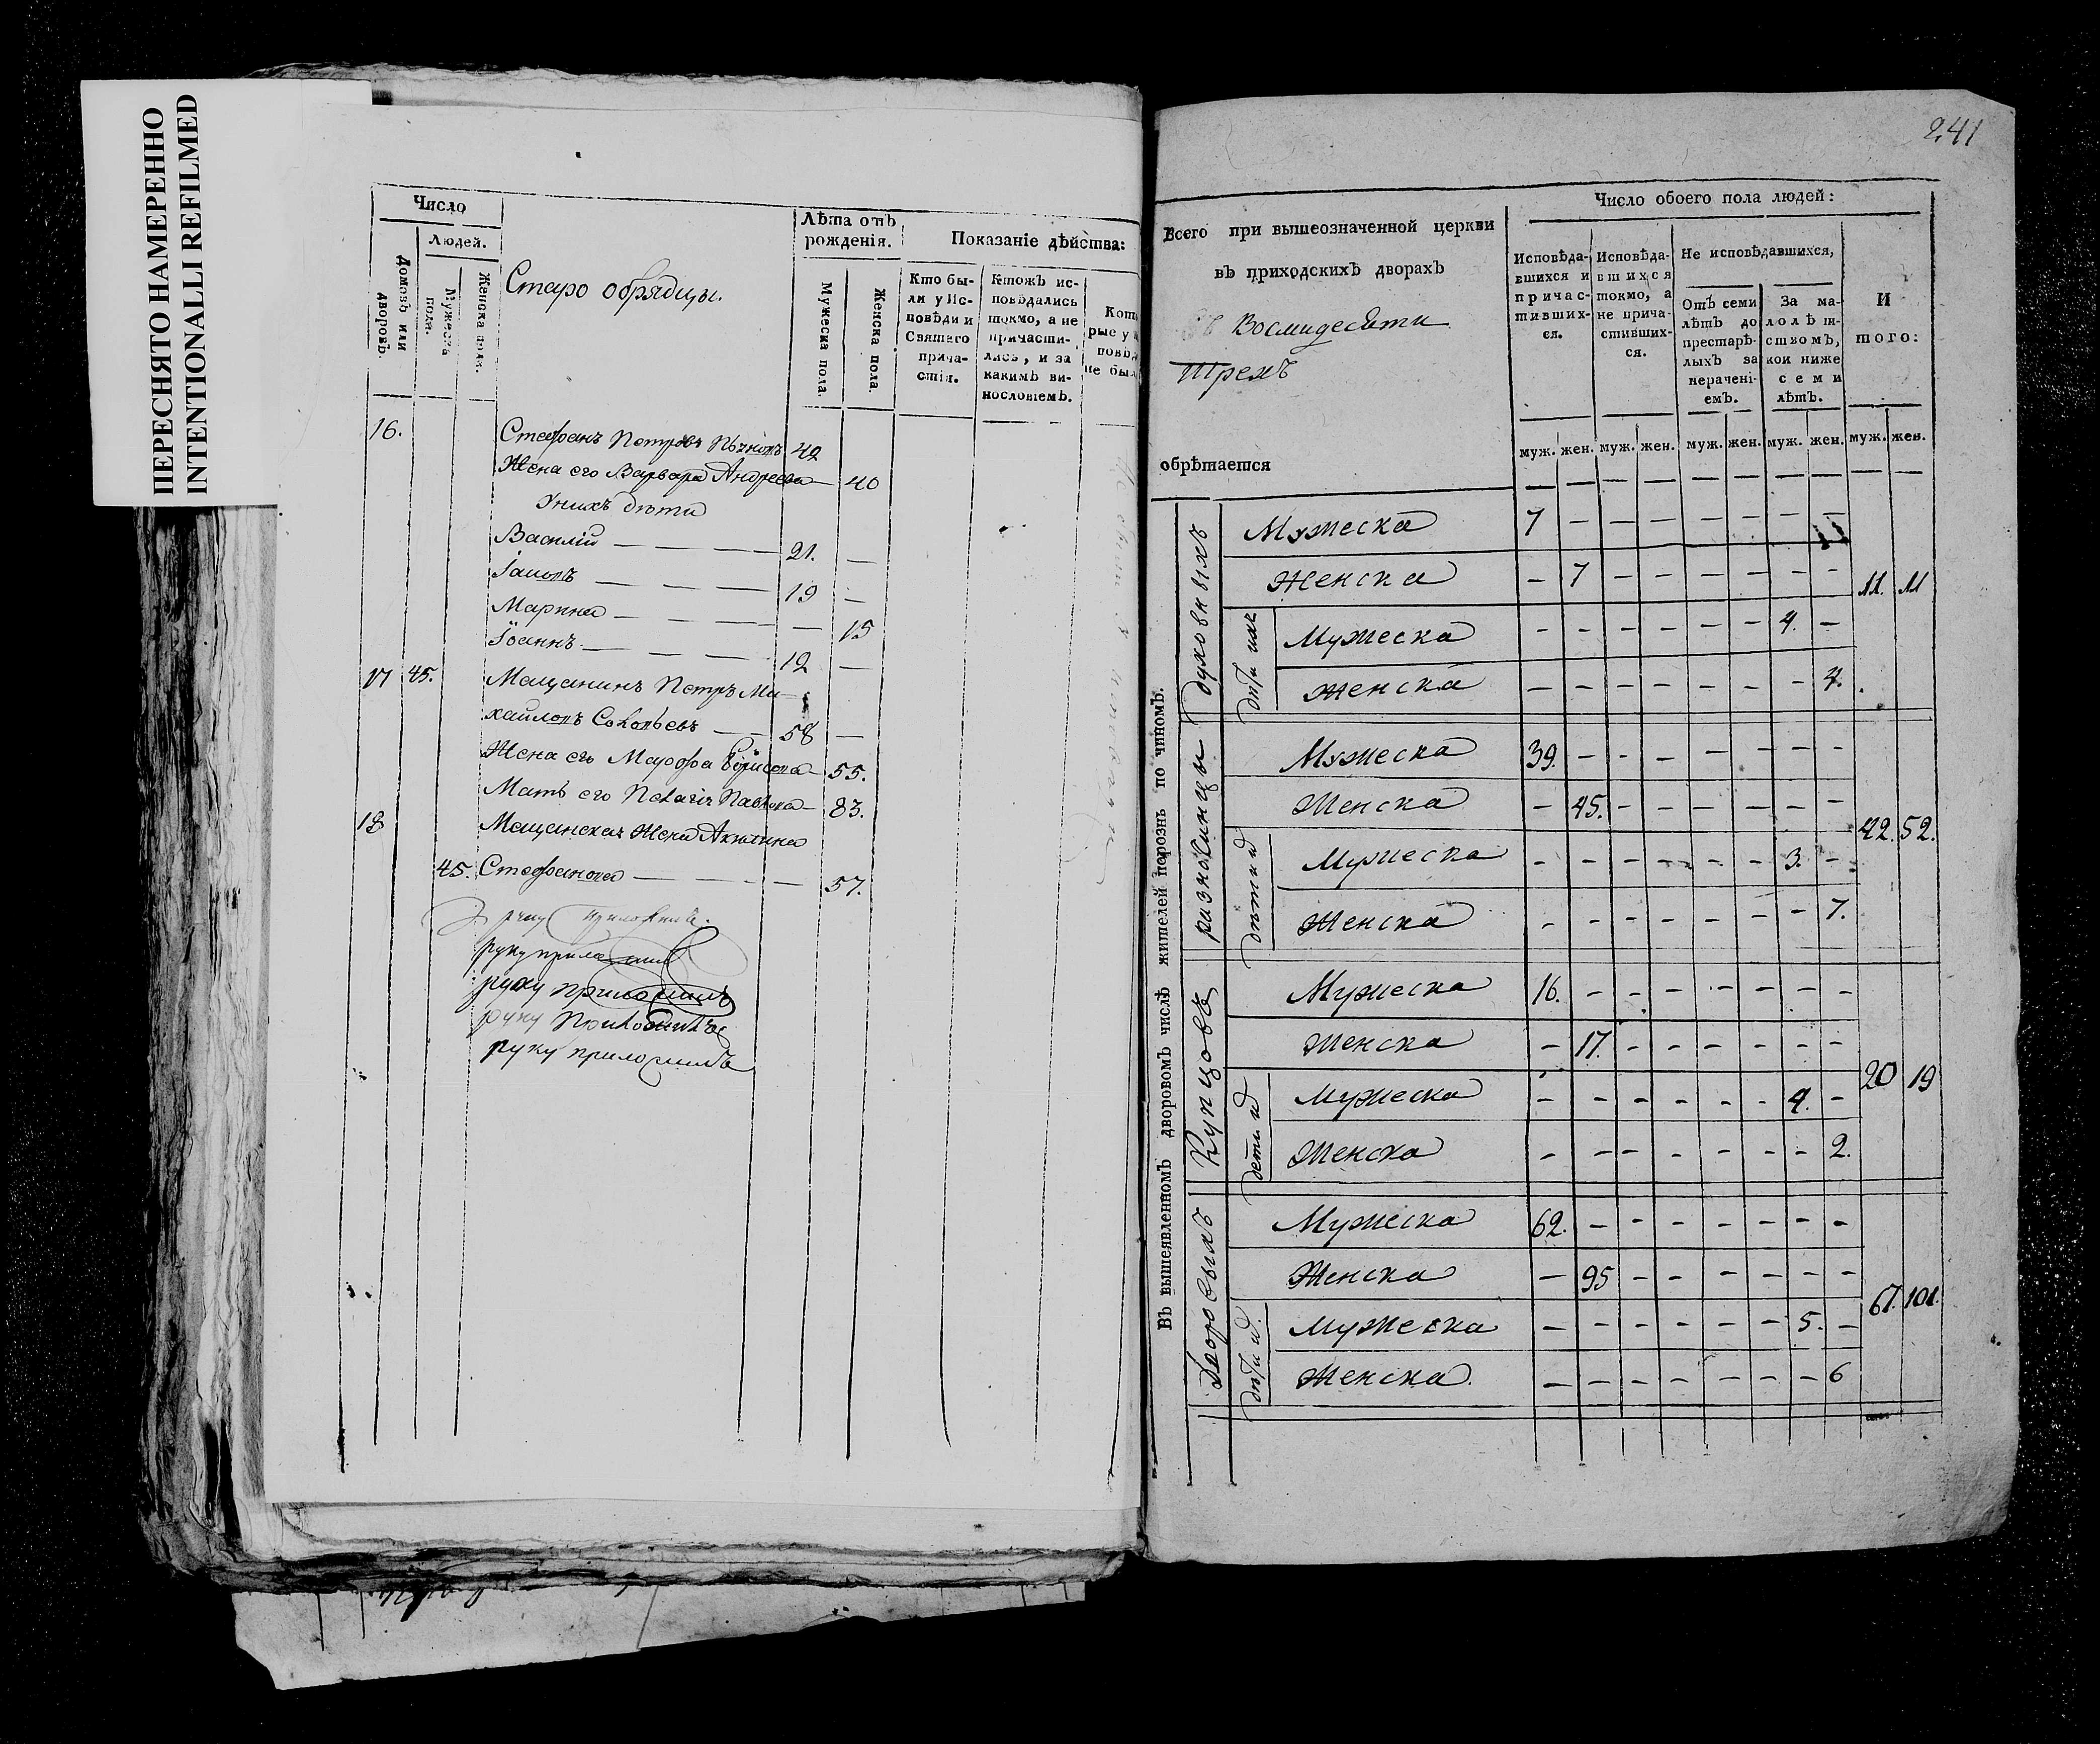 ПЕРЕСНЯТО НАМЕРЕННО
INTENTIONALLI REFILMED
Число
Людей.
Домовъ или дворовъ.
Мужеска пола.
Женска пола.
Старо обрядцы.
Лѣта отъ рожденія.
Мужеска пола.
Женска пола.
Показаніе дѣйства:
Кто бы-
ли у Ис-
повѣди и
Святаго
прича-
стія.
Ктожъ ис-
повѣдались
токмо, а не
причасти-
лись, и за
какимъ ви-
нословіемъ.
16.
Стефанъ Петровъ 42
Жена его Варвара Андреева — 40
У нихъ дѣти
Василій — — — — 21. —
— — — — 19 —
Марина — — — — 15
Іоаннъ. — — — — 12 —
17 45. Мещанинъ Петръ Ми-
хайловъ — — 58 —
Жена его Марфа Борисова — 55.
Мать его Пелагія Павлова — 83.
18 Мещанская Жена Акилина
45. Стефанова — — — — 57.
руку приложилъ
руку приложилъ
руку приложилъ
руку приложилъ
241
Всего при вышеозначенной церкви
въ приходскихъ дворахъ
Восмидесяти
трехъ
обрѣтается
Число обоего пола людей:
Исповѣда-
вшихся и
причас-
тивших-
ся.
Исповѣда-
вшихся
токмо, а
не прича-
стивших-
ся.
Не исповѣдавшихся,
Отъ семи
лѣтъ до
престарѣ-
лыхъ за
нерачені-
емъ.
За ма-
лолѣт-
ствомъ,
кои ниже
семи
лѣтъ.
И
того:
муж. жен. муж. жен. муж. жен. муж. жен. муж. жен.
Въ вышеявленномъ дворовомъ числѣ жителей порознь по чиномъ.
духовныхъ
Мужеска 7 — — — — — — —
Женска — 7 — — — — — —
11. 11
дѣти ихъ
Мужеска — — — — — — 4. —
Женска — — — — — — — 4.
разночинцы
Мужеска 39. — — — — — — —
Женска — 45. — — — — — —
42. 52.
дѣти ид
Мужеска — — — — — — 3. —
Женска — — — — — — — 7.
Купцовъ
Мужеска 16. — — — — — — —
Женска — 17. — — — — — —
20 19
дети ид
Мужеска — — — — — — 4. —
Женска — — — — — — — 2.
Дворовыхъ
Мужеска 62. — — — — — — —
Женска — 95 — — — — — —
67. 101.
дѣти ид.
Мужеска — — — — — — 5. —
Женска. — — — — — — — 6